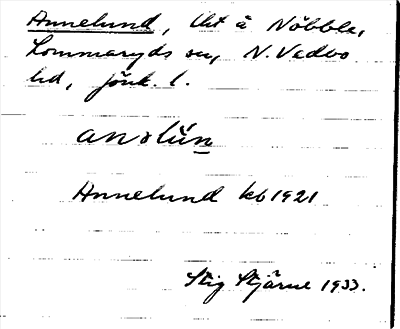 Annelund, lht å Nöbbele,
Lommaryds sn, N. Vedbo
hd, Jönk. l.
anəlún
Annelund kb 1921
Stig Stjärne 1933.